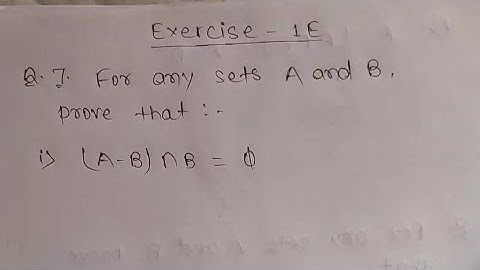 Exercise - 1E
Q.7. For any sets A and B,
prove that :-
i> (A-B) ∩ B = ϕ